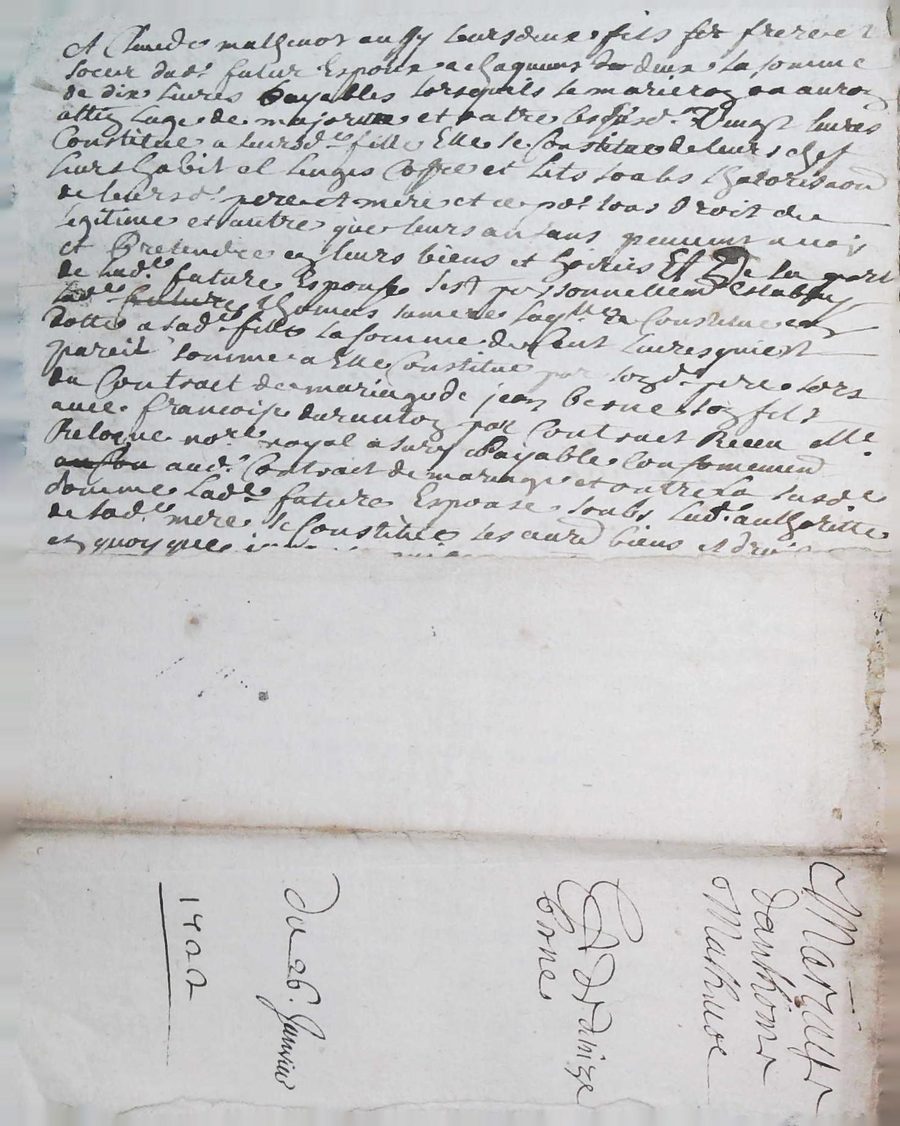 et Claude mathevot aussy leurs deux fils frere et
soeur dud.t futur Espoux a chaquuns de deux la somme
de dix livres payables lorsquils se marieron ou auron
attin lage de majoritte et outre les susd. Vingt livres
Constitue a leursd.tes fille Elle se Constitue de leurs chef
leurs habit et linges Coffre et lits soubs lhatorisaon
de leursd.t pere et mere et ce po.r tous Droit de
legitime et autre que leurs an sans peuvent avoir
et Pretendre en leurs biens et hoiries Et De la part
de lad.te future Espouse s'est personnellem.t establye
lad.te Thomas sa mere laq.lle Constitue en
dotte a sad.te fille la somme de Cent livres qui est
pareil somme a Elle Constitue par sond.t pere lors
du Contrait de mariage de jean berne son fils
avec francoise durunton par Contrait Receu M.e
Reloque no.re royal a sury payable Conformement
aud.t Contrait de mariage et outre la susde
somme Lad.te future Espouse soubs lad.t authoritte
de sad.te mere se Constitue ses biens et droi
en quoy que
Mariage
danthoine
Mathevot
Et danize
berne
du 26. Janvier
1722